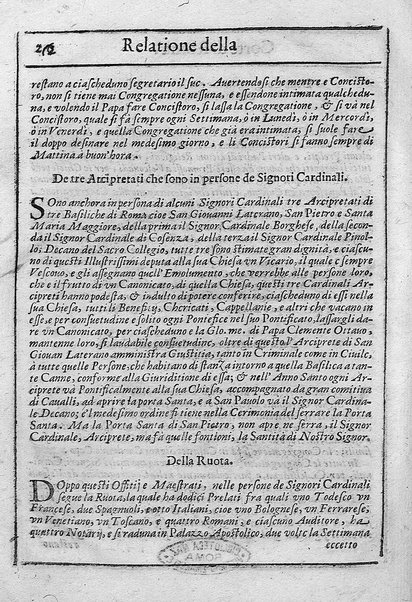 Relatione della
restano a ciascheduno segretario il suc. Auertendosi che mentre e Concisto-
ro, non si tiene mai Congregatione nessuna, e essendone intimata qualchedu-
na, e volendo il Papa fare Concistoro, si lassa la Congregatione, & si và nel
Concistoro, quale si fà sempre ogni Settimana, ò in Lunedì, ò in Mercordì,
ò in Venerdì, e quella Congregatione che già era intimata, si suole fare
il doppo desinare nel medesimo giorno, e li Concistori si fanno sempre di
Mattina à buon'hora.
De tre Arcipretati che sono in persone de Signori Cardinali.
SOno anchora in persona di alcuni Signori Cardinali tre Arcipretati di
tre Basiliche di Roma cioe San Giouanni Laterano, San Pietro e Santa
Maria Maggiore, della prima il Signor Cardinale Borghese, della secon-
da il Signor Cardinale di Cosenza, della terza il Signor Cardinale Pinol-
lo: Decano del Sacro Collegio, tutte tre sono stimate gran dignità, e ciascu-
no di questi Illustrissimi deputa alla sua Chiesa vn Vicario, il quale e sempre
Vescouo, e gli assegnano quell'Emolumento, che verrebbe alle persone loro,
che e il frutto di vn Canonicato, di quella Chiesa, questi tre Cardinali Ar-
cipreti hanno podestà, & indulto di potere conferire, ciascheduno di essi nella
sua Chiesa, tutti li Beneficy, Chericati, Cappellanie, e altri che vacano in
esse, e per consuetudine e solito ogni Pontefice nel suo Pontificato, lassargli da-
re vn Canonicato, per ciascheduno e la Glo. me. di Papa Clemente Ottauo,
mantenne loro, si laudabile consuetudine, oltre di questo l'Arciprete di San
Giouan Laterano amministra Giustitia, tanto in Criminale come in Ciuile,
à tutte quelle Persone, che habitano di stanza intorno a quella Basilica a tan-
te Canne, conforme alla Giuriditione di essa; & nell'Anno Santo ogni Ar-
ciprete và Pontificalmente alla sua Chiesa, accompagnato da gran comitiua
di Caualli, ad aprire la porta Santa, e a San Pauolo và il Signor Cardina-
le Decano; e'l medesimo ordine si tiene nella Cerimonia del serrare la Porta
Santa. Ma la Porta Santa di San Pietro, non apre ne serra, il Signor
Cardinale, Arciprete, ma fà quelle fontioni, la Santità di Nostro Signor.
Della Ruota.
DOppo questi Offitij e Maestrati, nelle persone de Signori Cardinali
segue la Ruota, la quale ha dodici Prelati fra quali vno Todesco vn
Francese, due Spagnuoli, e otto Italiani, cioe vno Bolognese, vn Ferrarese,
vn Venetiano, vn Toscano, e quattro Romani, e ciascuno Auditore, ha
quattro Notarij, e si raduna in Palazzo Apostolico, due volte la Settimana
eccetto
ROMA